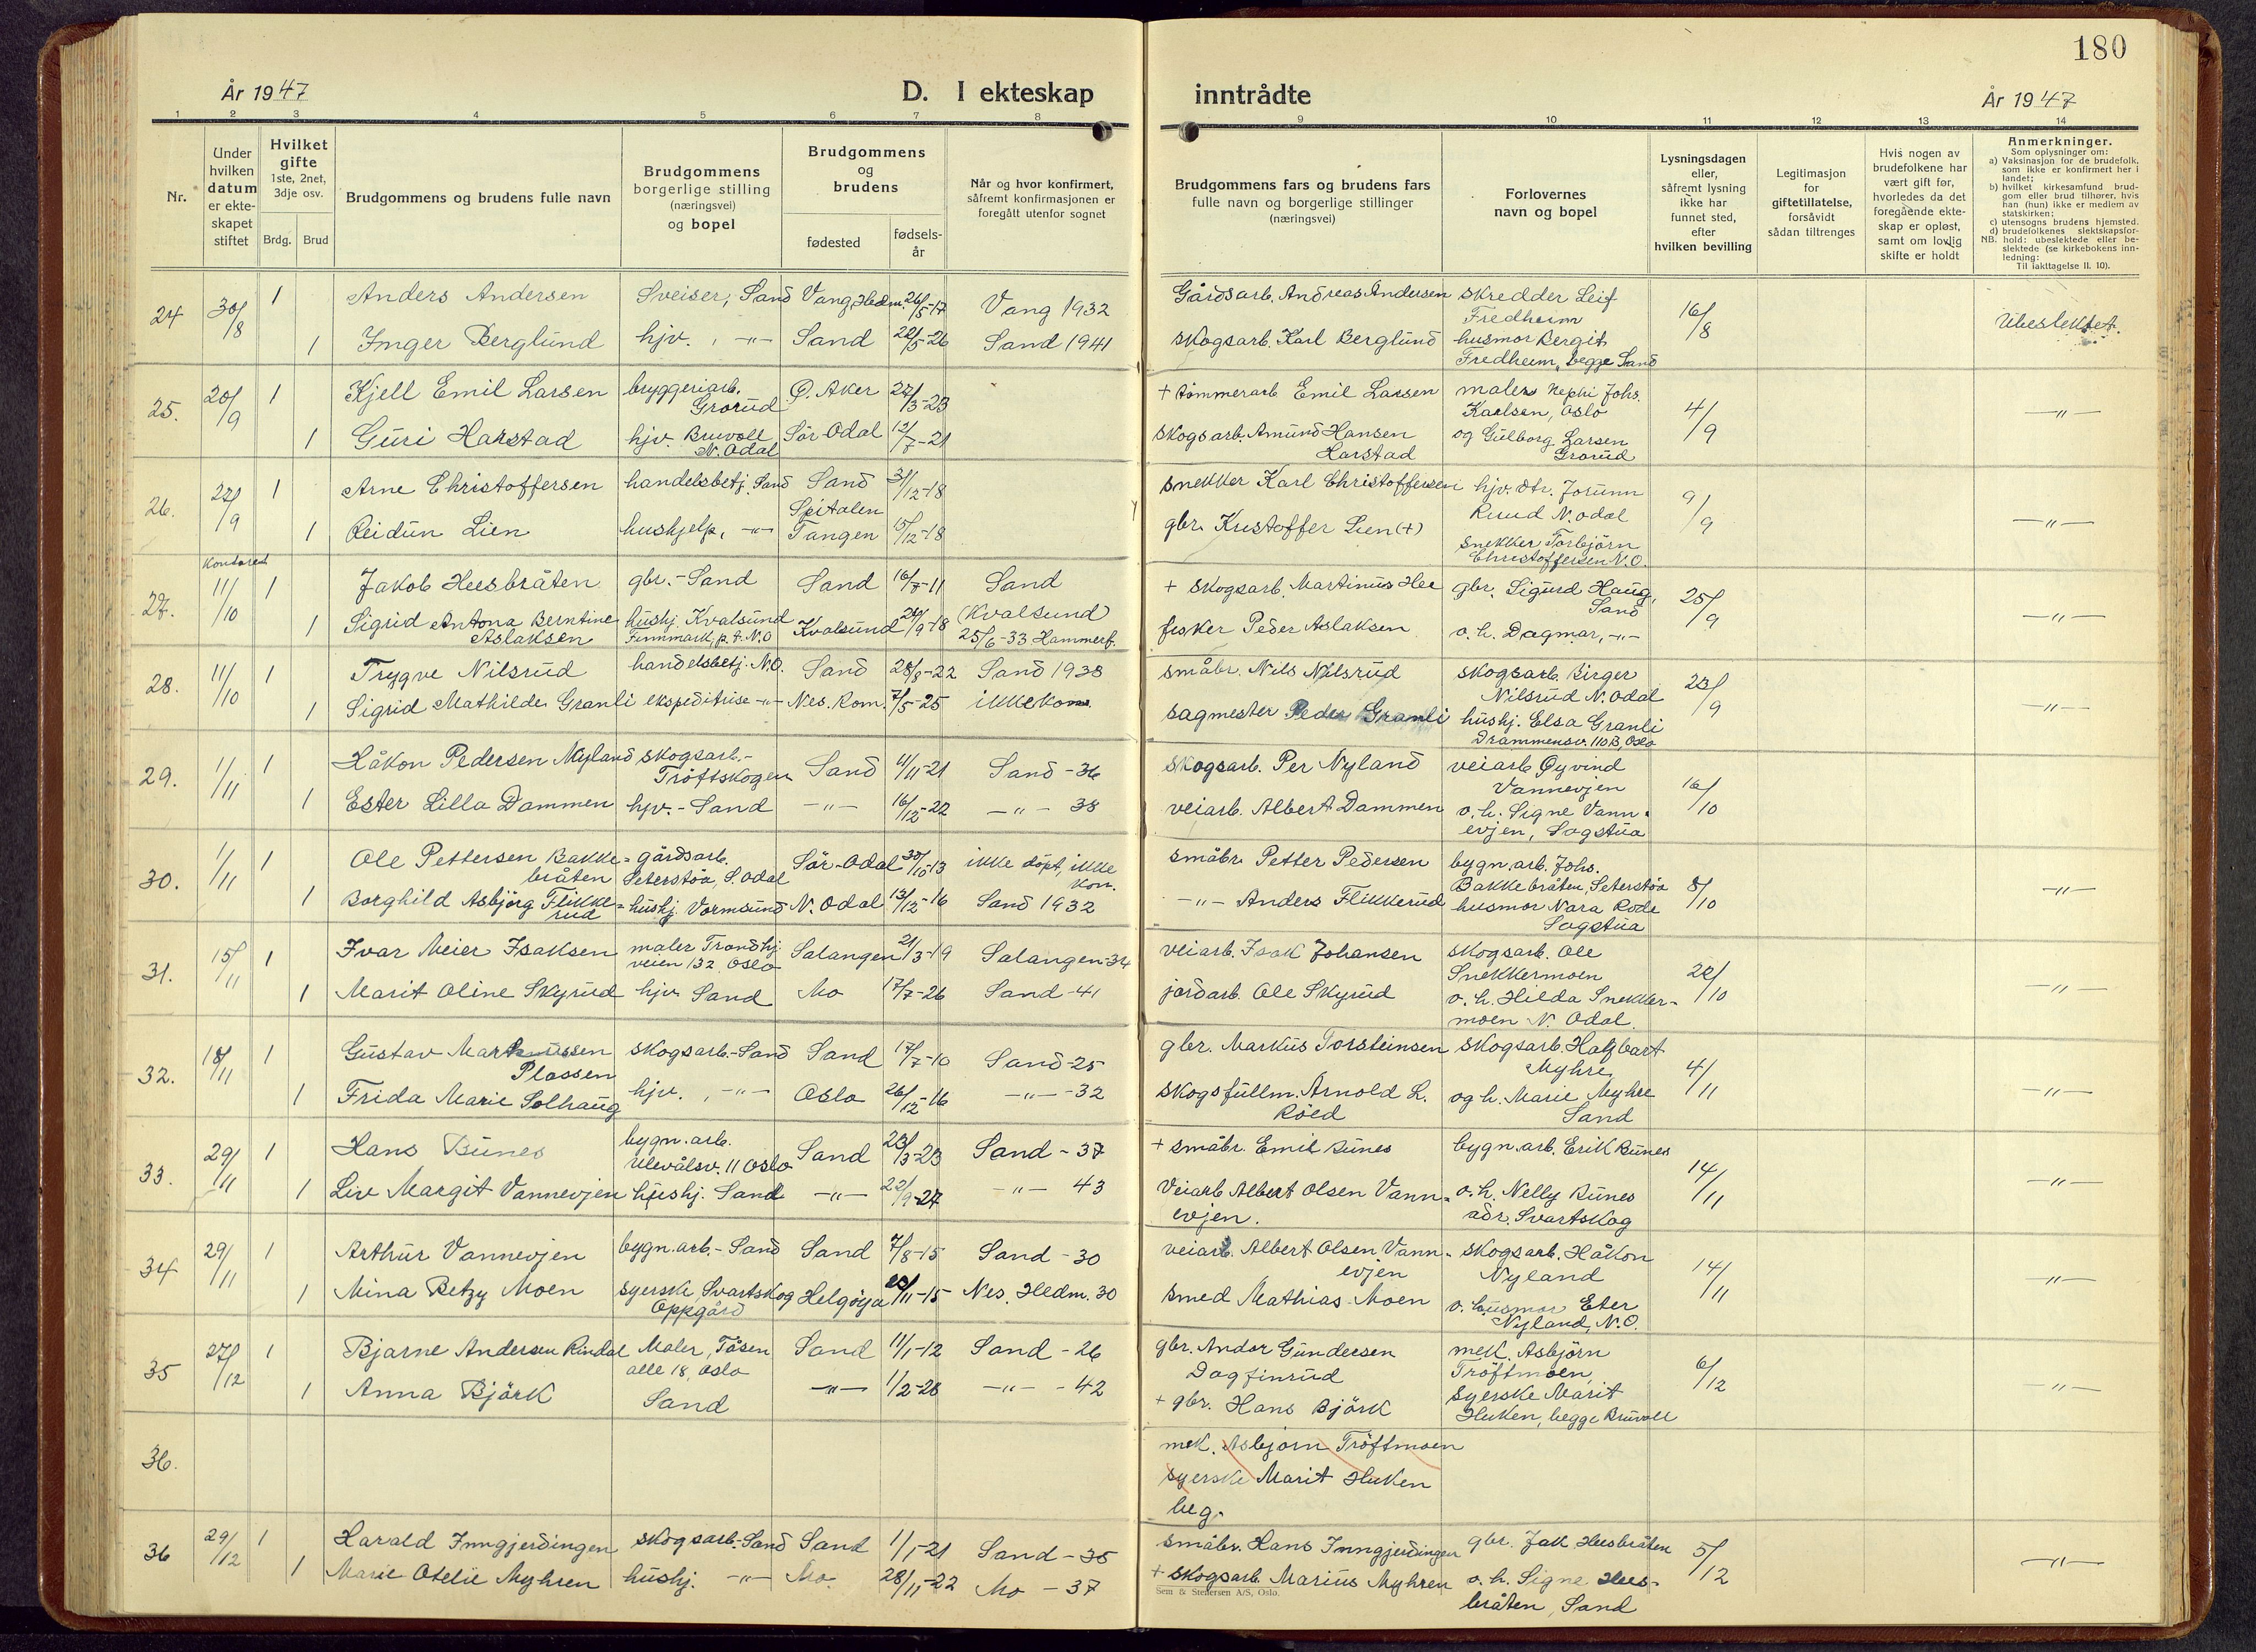 180
År 1947
D. I ekteskap
inntrådte
År 1947
1 2 3 4 5 6 7 8
9 10 11 12 13 14
Nr.
Under
hvilken
datum
er ekte-
skapet
stiftet
Hvilket
gifte
1ste, 2net,
3dje osv.
Brdg. Brud
Brudgommens og brudens fulle navn
Brudgommens
borgerlige stilling
(næringsvei)
og bopel
Brudgommens
og
brudens
fødested
fødsels-
år
Når og hvor konfirmert,
såfremt konfirmasjonen er
foregått utenfor sognet
Brudgommens fars og brudens fars
fulle navn og borgerlige stillinger
(næringsvei)
Forlovernes
navn og bopel
Lysningsdagen
eller,
såfremt lysning
ikke har
funnet sted,
efter
hvilken bevilling
Legitimasjon
for
giftetillatelse,
forsåvidt
sådan tiltrenges
Hvis nogen av
brudefolkene har
vært gift før,
hvorledes da det
foregående ekte-
skap er opløst,
samt om lovlig
skifte er holdt
Anmerkninger.
Som oplysninger om:
a) Vaksinasjon for de brudefolk,
som ikke er konfirmert her i
landet;
b) hvilket kirkesamfund brud-
gom eller brud tilhører, hvis
han (hun) ikke er medlem av
statskirken;
c) utensogns brudens hjemsted.
d) brudefolkenes slektskapsfor-
NB. hold: ubeslektede eller be-
slektede (se kirkebokens inn-
ledning:
Til iakttagelse II. 10).
24 30/8 1 Anders Andersen Sveiser, Sand Vang, Hedm. 26/5-17 Vang 1932 Gårdsarb. Andreas Andersen skredder Leif
Fredheim 16/8 Ubeslektet.
1 Inger Berglund hjv. , -"- Sand 22/5-26 Sand 1941 skogsarb. Karl Berglund husmor Bergit
Fredheim, begge Sand
25. 20/9 1 Kjell Emil Larsen bryggeriarb.
Grorud Ø. Aker 27/3-23 + tømmerarb Emil Larsen maler Nephi Johs.
Karlsen, Oslo 4/9 -"-
1 Guri Harstad hjv. Bruvoll
N. Odal Sör-Odal 12/7-21 skogsarb. Amund Hansen
Harstad og Gulborg Larsen
Grorud
26. 27/9 1 Arne Christoffersen handelsbetj. Sand Sand 31/12-18 snekker Karl Christoffersen hjv. dtr. Jorunn
Ruud N. Odal 9/9 -"-
1 Reidun Lien hushjelp, -"- Spitalen
Tangen 15/12-18 gbr. Kristoffer Lien (+) snekker Torbjörn
Christoffersen N.O.
27. Kontoret
11/10 1 Jakob Heesbråten gbr. - Sand Sand 16/7-11 Sand + skogsarb. Martinus Hee gbr. Sigurd Haug,
Sand 25/9 -"-
1 Sigrid Antona Berntine
Aslaksen hushj. Kvalsund
Finnmark, p.t. N.O Kvalsund 29/9-18 (Kvalsund)
25/6-33 Hammerf. fisker Peder Aslaksen o. h. Dagmar, -"-
28. 11/10 1 Trygve Nilsrud handelsbetj. N.O. Sand 28/8-22 Sand 1938 småbr. Nils Nilsrud skogsarb. Birger
Nilsrud N. Odal 23/9 -"-
1 Sigrid Mathilde Granli ekspeditrise -"- Nes. Rom. 7/5-25 ikke kon. sagmester Peder Granli hushj. Elsa Granli
Drammensv. 110B, Oslo
29. 1/11 1 Håkon Pedersen Nyland skogsarb.-
Tröftskogen Sand 11/11-21 Sand - 36 skogsarb. Per Nyland veiarb Øyvind
Vannevjen 16/10
1 Ester Lilla Dammen hjv. - Sand -"- 16/12-22 -"- 38 veiarb. Albert Dammen o. h. Signe Vann-
evjen, Sagstua
30. 1/11 1 Ole Pettersen Bakke-
bråten gårdsarb.
Seterstöa, S. Odal Sör-Odal 30/10-13 ikke döpt, ikke
kon. småbr. Petter Pedersen bygn. arb. Johs.
Bakkebråten, Seterstöa 8/10 -"-
1 Borghild Asbjörg Flikke-
rud hushj. Vormsund N. Odal 13/12-16 Sand 1932 -"- Anders Flikkerud husmor Nora Rode
Sagstua
31. 15/11 1 Ivar Meier Isaksen maler Trondhj.
veien 132, Oslo Salangen 21/3-19 Salangen-34 veiarb. Isak Johansen skogsarb. Ole
Snekkermoen 22/10 -"-
1 Marit Oline Skyrud hjv. Sand Mo 17/7-26 Sand -41 jordarb. Ole Skyrud o. h. Hilda Snekker-
moen N. Odal.
32. 18/11 1 Gustav Markussen
Plassen skogsarb.-Sand Sand 17/7-10 Sand-25 gbr. Markus Torsteinsen skogsarb. Hagbart
Myhre 4/11 -"-
1 Frida Marie Solhaug hjv. , -"- Oslo 26/12-16 -"- -32 skogsfullm. Arnold L.
Röed og h. Marie Myhre
Sand
33. 29/11 1 Hans Bunes bygn. arb.
Ulevålsv. 11 Oslo Sand 23/3-23 Sand - 37 + småbr. Emil Bunes bygn. arb. Erik Bunes 14/11 -"-
1 Liv Margit Vannevjen hushj. Sand -"- 22/9-27 -"- 43 Veiarb Albert Olsen Vann-
evjen. o. h. Nelly Bunes
adr. Svartskog
34 29/11 1 Arthur Vannevjen bygn.arb.- Sand Sand 7/8-15 Sand - 30 veiarb. Albert Olsen Vann-
evjen skogsarb. Håkon
Nyland 14/11 -"-
1 Mina Betzy Moen syerske, Svartskog
Oppgård Helgöya /11-15 Nes, Hedm. 30 smed Mathias Moen o. husmor Ester
Nyland, N.O.
35 27/12 1 Bjarne Andersen Rindal Maler, Tåsen
alle 18, Oslo Sand 11/1-12 Sand - 26 gbr. Andor Gundersen
Dagfinrud mek. Asbjörn
Tröftmoen, 6/12 -"-
1 Anna Björk Sand -"- 1/2-28 -"- - 42 + gbr. Hans Björk syerske Marit
Huken, begge Bruvoll
36. mek. Asbjörn Tröftmoen
syerske Marit Huken
beg.
36 29/12 1 Harald Inngjerdingen skogsarb.-Sand Sand 1/1-21 Sand - 35 småbr. Hans Inngjerdingen gbr. Jak. Heesbråten 5/12 -"-
1 Marie Otelie Myhren hushj. -"- Mo. 28/11-22 Mo - 37 + skogsarb. Marius Myhren o. h. Signe Hees-
bråten, Sand
Sem & Stenersen A/S, Oslo.